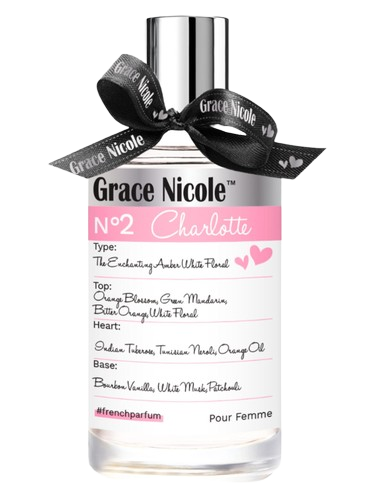 Grace Nicole
Grace Nicole
Grace Nicole
Grace Nicole™
Nº2 Charlotte
Type:
The Enchanting Amber White Floral
Top:
Orange Blossom, Green Mandarin,
Bitter Orange, White Floral
Heart:
Indian Tuberose, Tunisian Neroli, Orange Oil
Base:
Bourbon Vanilla, White Musk, Patchouli
#frenchparfum
Pour Femme